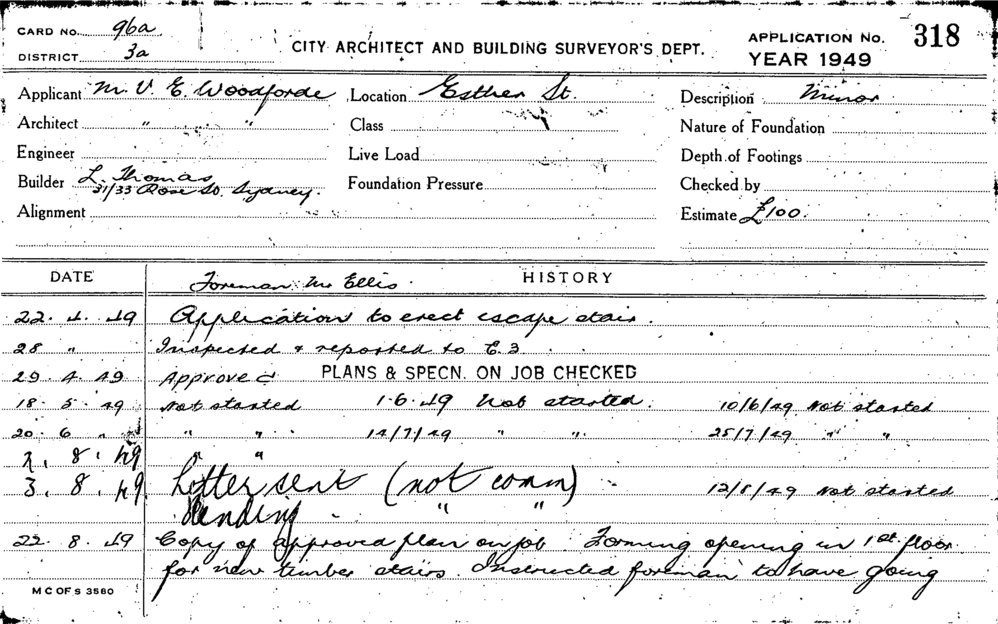 CARD NO. 96a
DISTRICT 3a
CITY ARCHITECT AND BUILDING SURVEYOR'S DEPT.
APPLICATION No. 318
YEAR 1949
Applicant M. V. E. Woodforde Location Esther St. Description Minor
Architect " " Class Nature of Foundation
Engineer Live Load Depth of Footings
Builder L. Thomas Foundation Pressure Checked by
31/33 Rose St. Sydney.
Alignment Estimate £100.
DATE Foreman Mr Ellis. HISTORY
22. 4. 49 Application to erect escape stair.
28 " Inspected & reported to E.3.
29. 4. 49 Approved PLANS & SPECN. ON JOB CHECKED
18. 5. 49 Not started 1.6.49 Not started. 10/6/49 Not started
20. 6 " " " 14/7/49 " " 25/7/49 " "
2. 8. 49 " "
3. 8. 49 Letter sent (not comm) 12/8/49 Not started
Pending " "
22. 8. 49 Copy of approved plan on job. Forming opening in 1st. floor
for new timber stairs. Instructed foreman to have going
M C OF S 3580